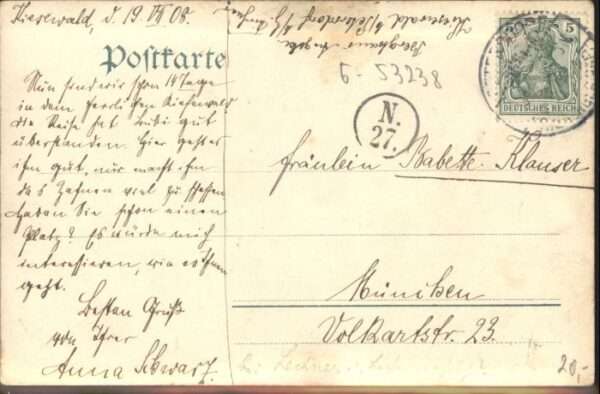 Kiesewald, d. 19. VII 08.
Postkarte
Nun sind wir schon 14 Tage
in dem herrlichen Kiesewald
die Reise hat gut
überstanden. Hier geht es
ihm gut, nur macht ihm
das Zahnen viel zu schaffen
Haben Sie schon einen
Platz? Es würde mich
interessieren, wie es Ihnen
geht.
Besten Gruß
von Ihrer
Anna Schwarz.
Kiesewald
6-53238
5
DEUTSCHES REICH
N.
27.
Fräulein Babette Klauser
München
Volkartstr. 23.
20,-